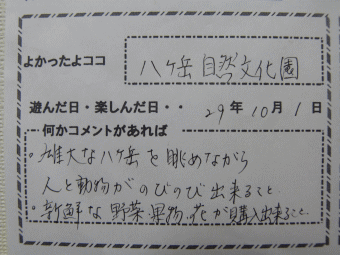 よかったよココ 八ヶ岳自然文化園
遊んだ日・楽しんだ日・・ 29年10月1日
何かコメントがあれば
・雄大な八ヶ岳を眺めながら
人と動物がのびのび出来ること
・新鮮な野菜・果物・花が購入出来ること